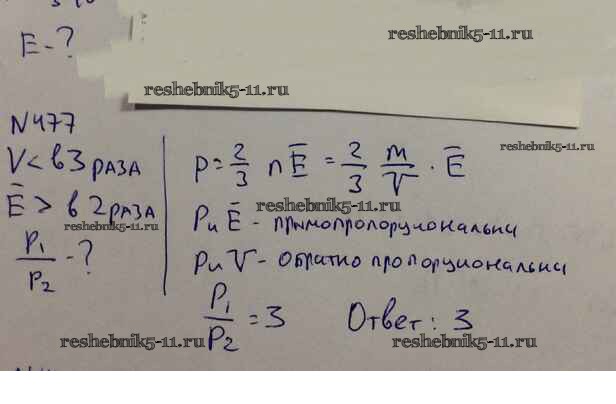 E - ?
reshebnik5-11.ru
reshebnik5-11.ru
N477
V < в 3 раза
Ē > в 2 раза
P₁/P₂ - ?
reshebnik5-11.ru
p = 2/3 n Ē = 2/3 m/V · Ē
reshebnik5-11.ru
P и Ē - прямопропорциональны
reshebnik5-11.ru
P и V - обратно пропорциональны
P₁/P₂ = 3 Ответ: 3
reshebnik5-11.ru
reshebnik5-11.ru